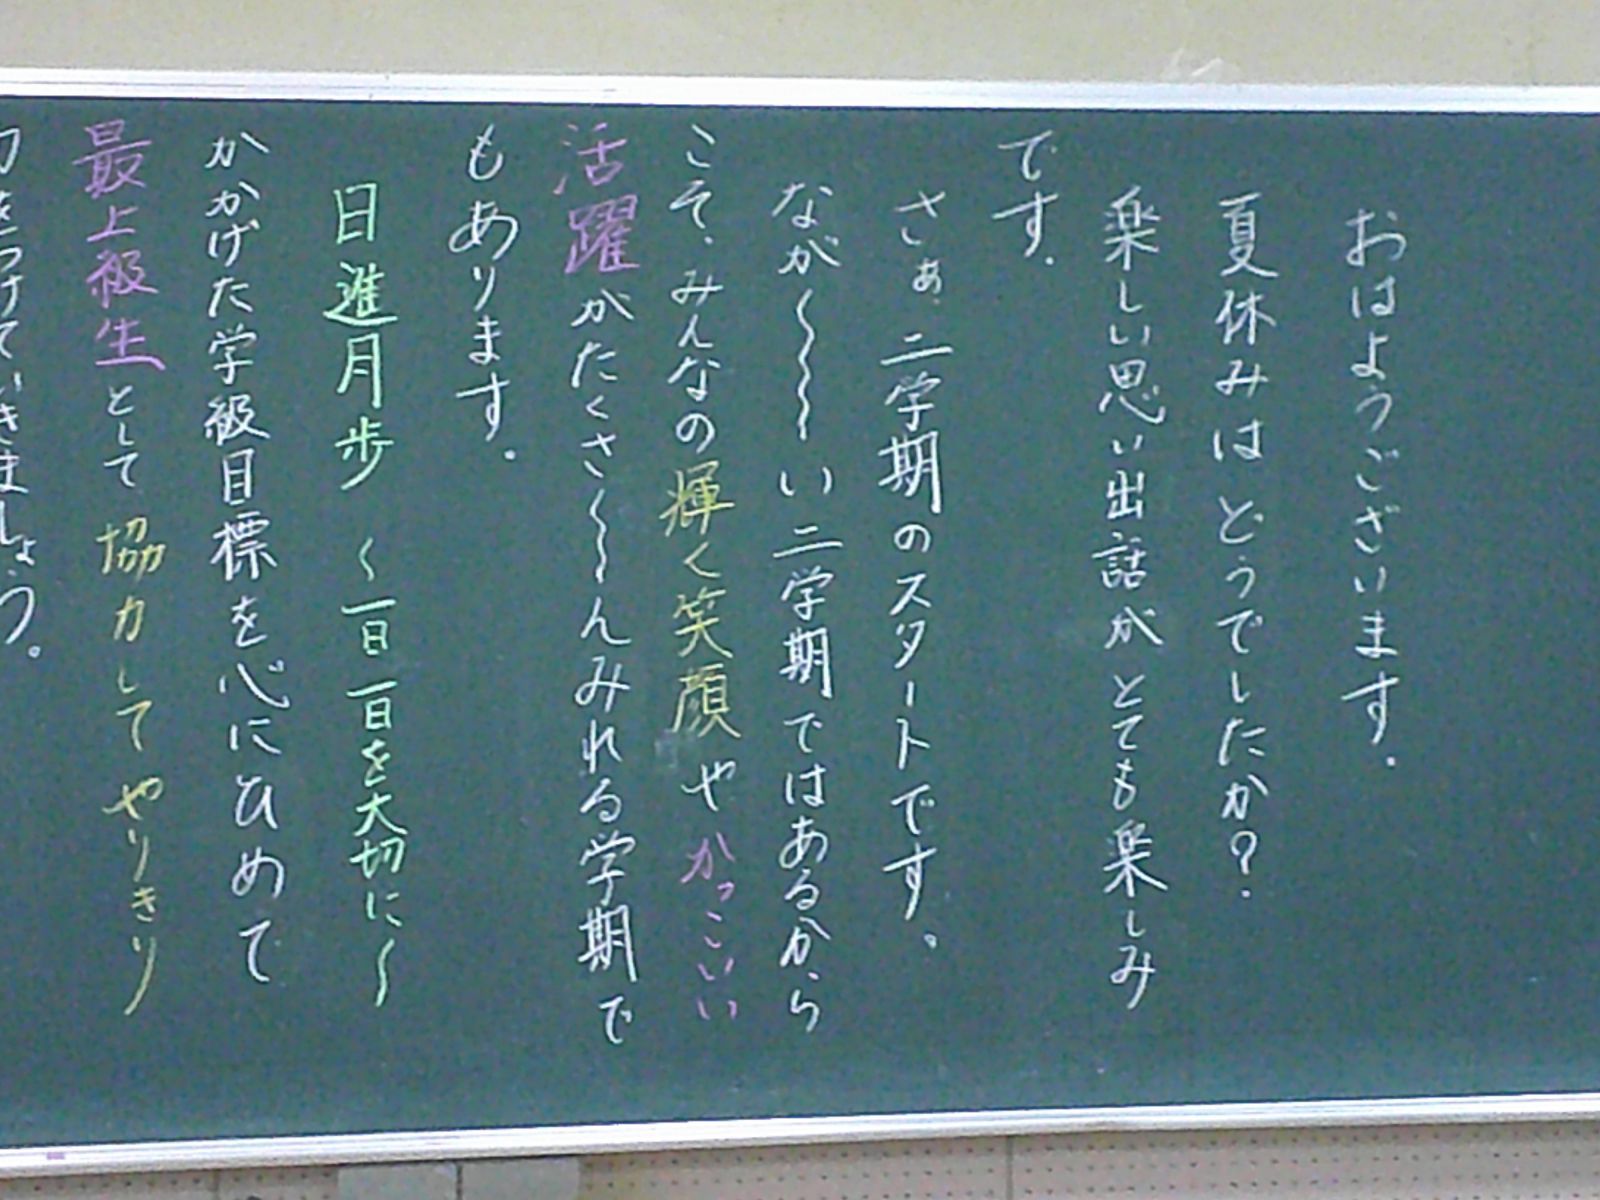 おはようございます.
夏休みはどうでしたか?.
楽しい思い出話がとても楽しみ
です.
さぁ、二学期のスタートです。
なが〜〜〜い二学期ではあるから
こそ、みんなの輝く笑顔やかっこいい
活躍がたくさ〜〜んみれる学期で
もあります.
日進月歩 〜一日一日を大切に〜
かかげた学級目標を心にひめて
最上級生として、協力してやりきり
力をつけていきましょう。